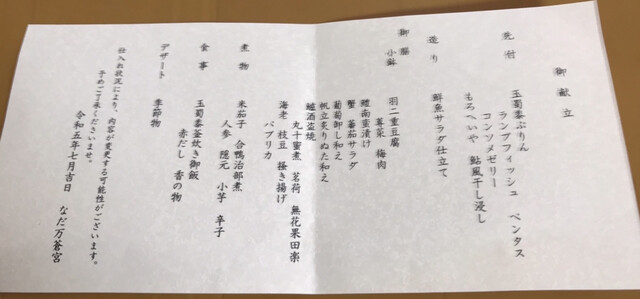 御献立
先付
玉蜀黍ぷりん
ランプフィッシュ ペンタス
コンソメゼリー
もろへいや 鮎風干し浸し
造り
鮮魚サラダ仕立て
御膳
小鉢
羽二重豆腐
蓴菜 梅肉
鱧南蛮漬け
蟹 蕃茄サラダ
葡萄卸し和え
帆立炙りぬた和え
鱸酒盗焼
丸十蜜煮 茗荷 無花果田楽
海老 枝豆 掻き揚げ
パプリカ
煮物
米茄子 合鴨治部煮
人参 隠元 小芋 辛子
食事
玉蜀黍釜炊き御飯
赤だし 香の物
デザート
季節物
仕入れ状況により、内容が変更する可能性がございます。
予めご了承くださいませ。
令和五年七月吉日 なだ万蒼宮